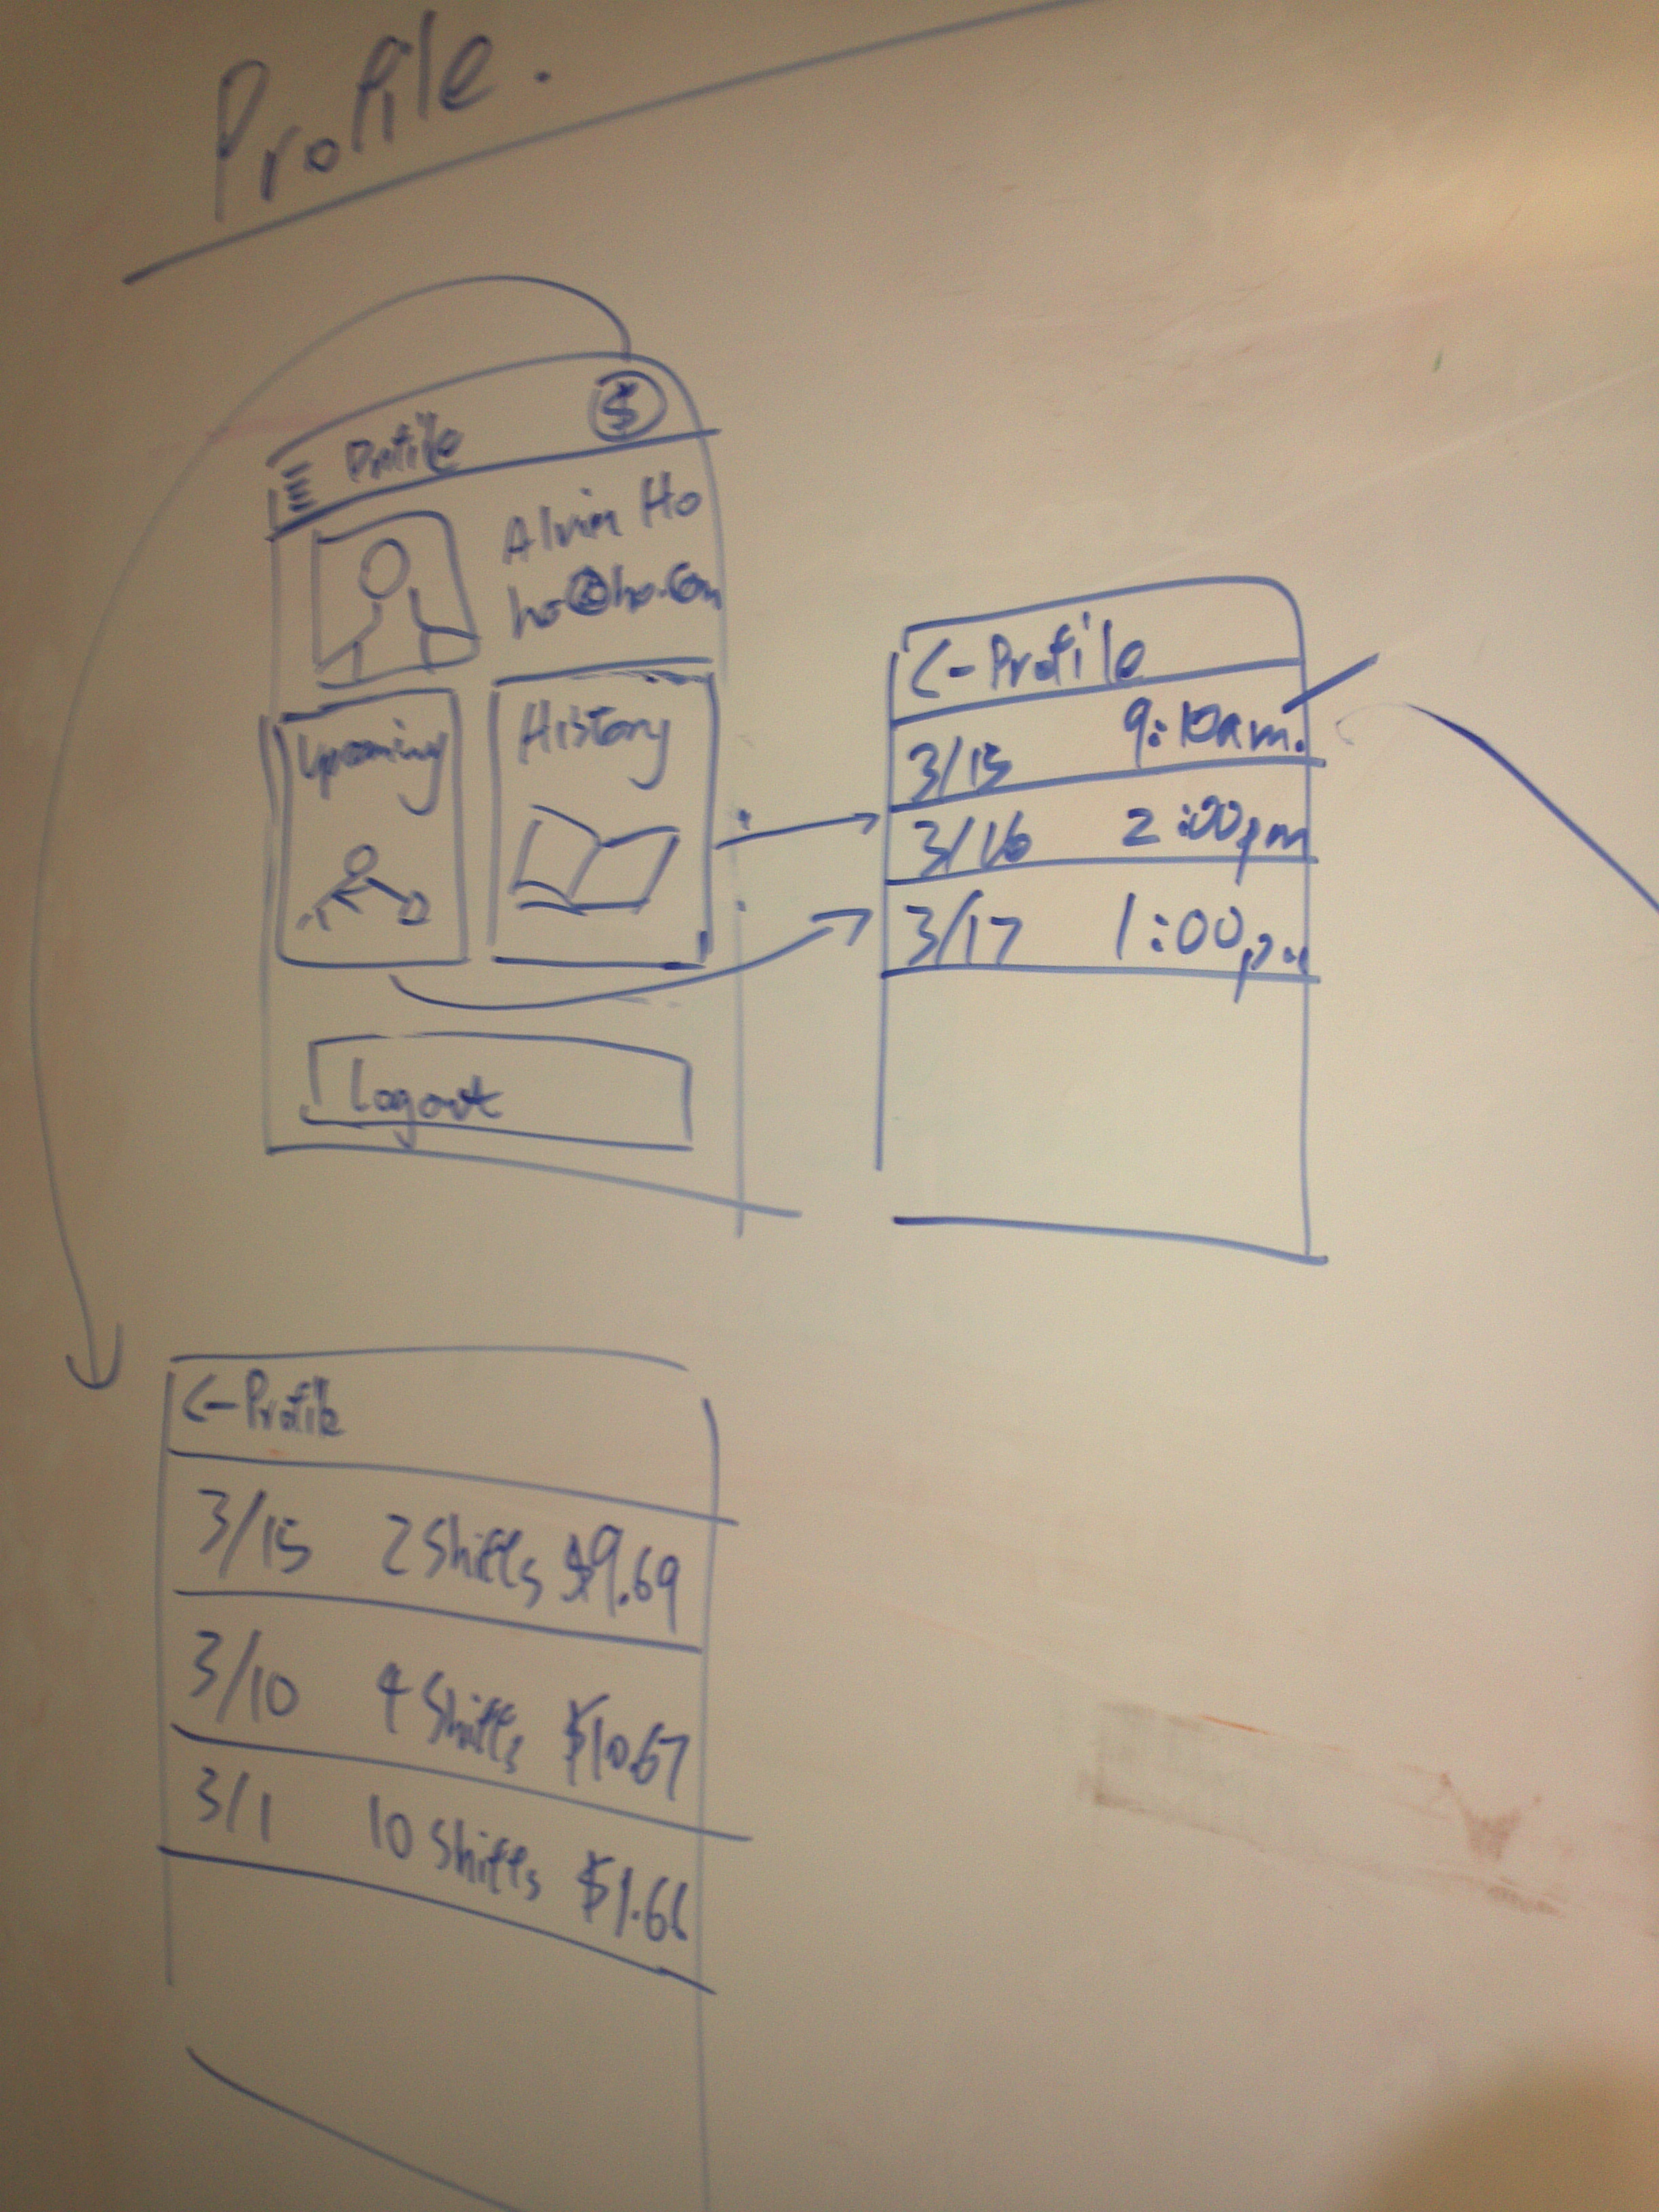 Profile.
Profile $
Alvin Ho
ho@ho.com
Upcoming
History
Logout
<- Profile
3/15 9:10am.
3/16 2:00pm
3/17 1:00pm
<- Profile
3/15 2 Shifts $9.69
3/10 4 Shifts $10.67
3/1 10 Shifts $1.66